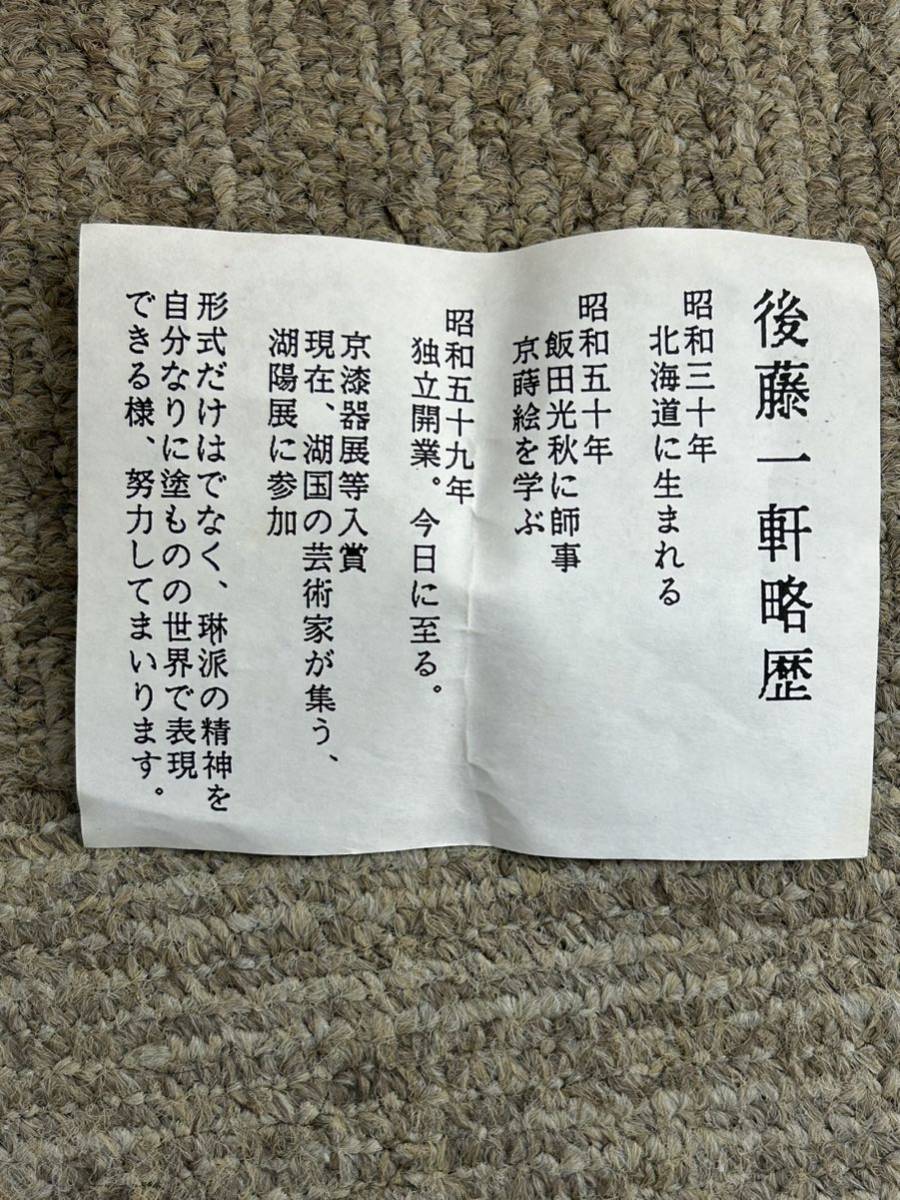 後藤一軒略歴
昭和三十年
北海道に生まれる
昭和五十年
飯田光秋に師事
京蒔絵を学ぶ
昭和五十九年
独立開業。今日に至る。
京漆器展等入賞
現在、湖国の芸術家が集う、
湖陽展に参加
形式だけはでなく、琳派の精神を
自分なりに塗ものの世界で表現
できる様、努力してまいります。